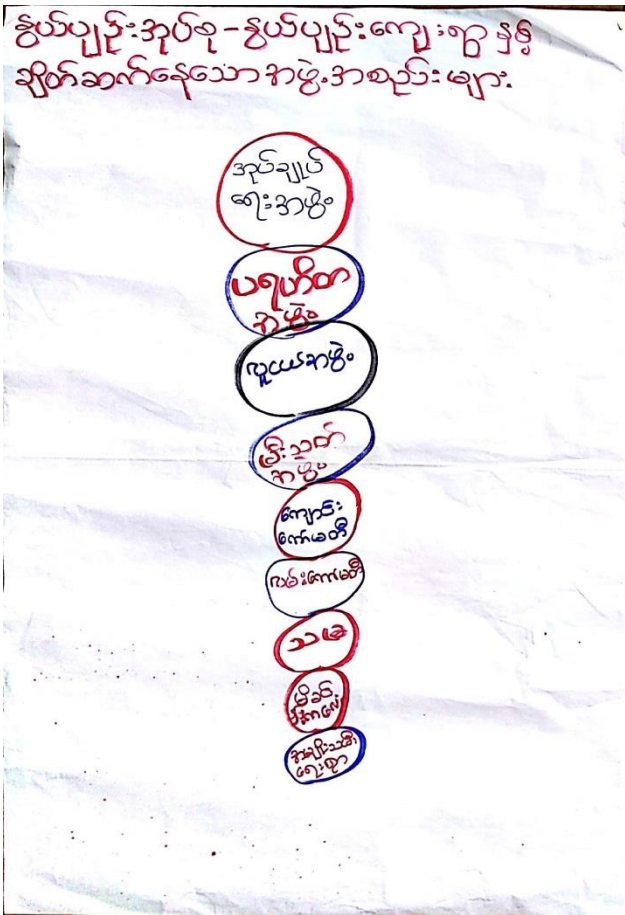 နွယ်ပျဉ်းအုပ်စု - နွယ်ပျဉ်းကျေးရွာ နှင့်
ချိတ်ဆက်နေသော အဖွဲ့အစည်းများ
အုပ်ချုပ်
ရေးအဖွဲ့
ပရဟိတ
အဖွဲ့
လူငယ်အဖွဲ့
မီးသတ်
အဖွဲ့
ကျောင်း
ကော်မတီ
လမ်းကော်မတီ
သမ
မိခင်
နှင့်ကလေး
အမျိုးသမီး
ရေးရာ